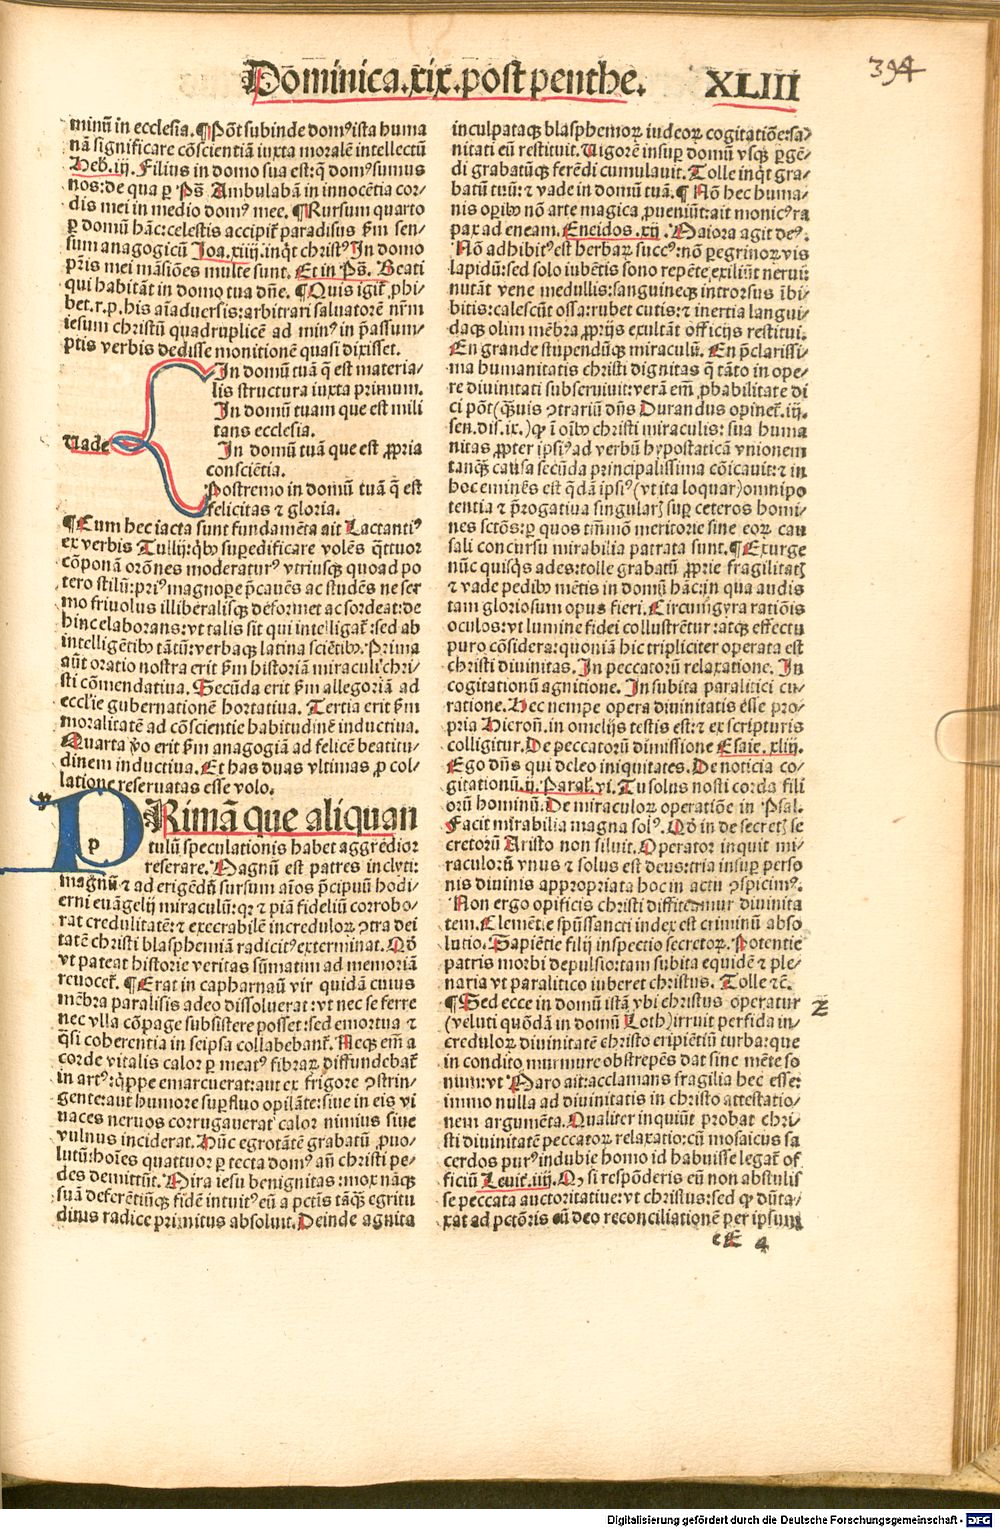 Dõminica.xix.post penthe. XLIII
394
minū in ecclesia. ¶ Põt subinde domꝰ ista huma
nā significare cōscientiā iuxta moralē intellectū
Heb. iij. Filius in domo sua est: q̄ domꝰ sumus
nos: de qua ꝑ Ps̄. Ambulabā in innocētia cor/
dis mei in medio domꝰ mee. ¶ Rursum quarto
ꝑ domū hāc: celestis accipit̃ paradisus ẜm sen/
sum anagogicū Joa. xiiij. inq̇t christꝰ In domo
pr̄is mei māsiões multe sunt. Et in Ps̄. Beati
qui habitāt in domo tua dñe. ¶ Quis igit̃ phi/
bet. r.p. his aīaduersis: arbitrari saluatorē nr̄m
iesum christū quadruplicē ad minꝰ in p̄assum/
ptis verbis dedisse monitionē quasi dixisset.
In domū tuā q̄ est materia/
lis structura iuxta primum.
In domū tuam que est mili
tans ecclesia.
Uade
In domū tuā que est ꝓpria
consciētia.
Postremo in domū tuā q̄ est
felicitas ⁊ gloria.
¶ Cum hec iacta sunt fundamēta ait Lactantiꝰ
ex verbis Tullij: q̇bꝰ suꝑedificare volēs q̄ttuor
cōponā orõnes moderatur̃ vtriusqꝫ quoad po
tero stilū: priꝰ magnoꝑe p̄cauēs ac studēs ne ser
mo friuolus illiberalisqꝫ deformet ac sordeat: de
hinc elaborans: vt talis sit qui intelligat̃: sed ab
intelligētibꝰ tātū: verbaqꝫ latina sciētibꝰ. Prima
aūt oratio nostra erit ẜm historiā miraculi chri/
sti cōmendatiua. Secūda erit ẜm allegoriā ad
eccl'ie gubernationē hortatiua. Tertia erit ẜm
moralitatē ad cōscientie habitudinē inductiua.
Quarta ṽo erit ẜm anagogiā ad felicē beatitu/
dinem inductiua. Et has duas vltimas ꝓ col/
latione reseruatas esse volo.
PRimā que aliquan
p
tulū speculationis habet aggredior
reserare. Magnū est patres inclyti:
magnū ⁊ ad erigēdū sursum aīos p̄cipuū hodi/
erni euāgelij miraculū: qꝛ ⁊ piā fideliū corrobo/
rat credulitatē: ⁊ execrabilē incredulorꝫ ꝯtra dei
tatē christi blasphemiā radicitꝰ exterminat. Qđ
vt pateat historie veritas sūmatim ad memoriā
reuocet̃. ¶ Erat in capharnaū vir quidā cuius
mēbra paralisis adeo dissoluerat: vt nec se ferre
nec vlla cōpage subsistere posset: sed emortua ⁊
q̄si coherentia in seipsa collabebant̃. Neqꝫ em̄ a
corde vitalis calor ꝑ meatꝰ fibrarꝫ diffundebat̃
in artꝰ: q̇ppe emarcuerat: aut ex frigore ꝯstrin/
gente: aut humore suꝑfluo opilāte: siue in eis vi
uaces neruos corrugauerat calor nimius siue
vulnus inciderat. Hūc egrotātē grabatū ꝓuo/
lutū: hoīes quattuor ꝑ tecta domꝰ añ christi pe/
des demittūt. Mira iesu benignitas: mox nāqꝫ
suā deferētiūqꝫ fidē intuitꝰ eū a pctīs tāqꝫ egritu
dinis radice primitus absoluit. Deinde agnita
inculpataqꝫ blasphemorꝫ iudeorꝫ cogitatiōe: sa/
nitati eū restituit. Uigorē insuꝑ domū vsqꝫ ꝑgē/
di grabatūqꝫ ferēdi cumulauit. Tolle inq̇t gra/
batū tuū: ⁊ vade in domū tuā. ¶ Nō hec huma/
nis opibꝰ nō arte magica ꝓueniūt: ait monicꝰ ra
pax ad eneam. Eneidos. xij. Maiora agit deꝰ.
Nō adhibitꝰ est herbarꝫ succꝰ: nō ꝑegrinorꝫ vis
lapidū: sed solo iubētis sono repēte exiliūt nerui:
nutāt vene medullis: sanguineqꝫ introrsus ībi/
bitis: calescūt ossa: rubet cutis: ⁊ inertia langui/
daqꝫ olim mēbra ꝓprijs exultāt officijs restitui.
En grande stupendūqꝫ miraculū. En p̄clarissi/
ma humanitatis christi dignitas q̄ tāto in ope/
re diuinitati subseruiuit: verā em̄ ꝓbabilitate di
ci põt (q̄uis ꝯtrariū dñs Durandus opinet̃. iij.
sen. dis. ix.) ꝙ ī oībꝰ christi miraculis: sua huma
nitas ꝓpter ipsiꝰ ad verbū hypostaticā vnionem
tanqꝫ causa secūda principalissima cōicauit: ⁊ in
hoc eminēs est q̄dā ipsiꝰ (vt ita loquar) omnipo
tentia ⁊ p̄rogatiua singularꝫ suꝑ ceteros homi/
nes sctõs: ꝑ quos tm̄mō meritorie sine eorꝫ cau
sali concursu mirabilia patrata sunt. ¶ Exurge
nūc quisq̇s ades: tolle grabatū ꝓprie fragilitatꝫ
⁊ vade pedibꝰ mētis in domū hāc: in qua audis
tam gloriosum opus fieri. Circumgyra ratiōis
oculos: vt lumine fidei collustrētur: atqꝫ effectu
puro cōsidera: quoniā hic tripliciter operata est
christi diuinitas. In peccatorū relaxatione. In
cogitationū agnitione. In subita paralitici cu/
ratione. Hec nempe opera diuinitatis esse pro/
pria Hieroñ. in omelijs testis est: ⁊ ex scripturis
colligitur. De peccatorū dimissione Esaie. xliij.
Ego dñs qui deleo iniquitates. De noticia co/
gitationū. ij. Paral. vi. Tu solus nosti corda fili
orū hominū. De miraculorꝫ operatiōe in Psal.
Facit mirabilia magna solꝰ. Qđ in de secretꝫ se
cretorū Aristo non siluit. Operator inquit mi/
raculorū vnus ⁊ solus est deus: tria insuꝑ perso
nis diuinis appropriata hoc in actu ꝯspicimꝰ.
Non ergo opificis christi diffitemur diuinita
tem. Clemētie spūssancti index est criminū abso
lutio. Sapiētie filij inspectio secretorꝫ. Potentie
patris morbi depulsio: tam subita equidē ⁊ ple/
naria vt paralitico iuberet christus. Tolle ⁊c̄.
¶ Sed ecce in domū istā vbi christus operatur
Z
(veluti quōdā in domū Loth) irruit perfida in/
credulorꝫ diuinitatē christo eripiētiū turba: que
in condito murmure obstrepēs dat sine mēte so
num: vt Maro ait: acclamans fragilia hec esse:
immo nulla ad diuinitatis in christo attestatio/
nem argumēta. Qualiter inquiūt probat chri/
sti diuinitatē peccatorꝫ relaxatio: cū mosaicus sa
cerdos purꝰ indubie homo id habuisse legat̃ of
ficiū Leuit. iiij. Qꝫ si respōderis eū non abstulis
se peccata auctoritatiue: vt christus: sed ꝙ dūta/
xat ad pctōris cū deo reconciliationē per ipsum
cE 4
Digitalisierung gefördert durch die Deutsche Forschungsgemeinschaft - DFG